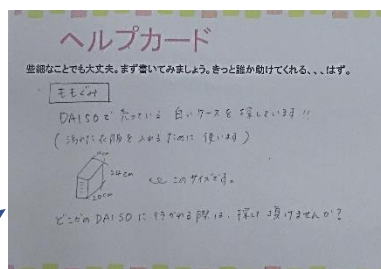 ヘルプカード
些細なことでも大丈夫。まず書いてみましょう。きっと誰か助けてくれる、、、はず。
ももぐみ
DAISOで売っている 白いケースを探しています!!
(汚れた衣服を入れるために使います)
24cm
20cm
このサイズです。
どこかのDAISOに行かれる際は、探して頂けませんか?